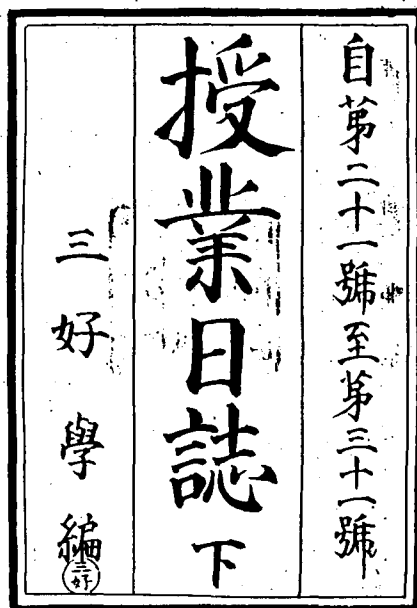 自第二十一號至第三十一號
授業日誌 下
三好學編
三好